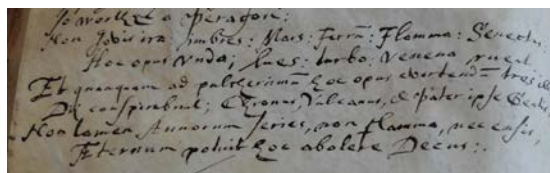 To worth is a Peragon:
Non Jovis ira: imbres: Mars: Ferrū: Flamma: Senectus:
Hoc opus Vnda; Lues: turbo: venena ruent.
Et quanquam ad pulcherimū hoc opus evertendū tres illi
Dij conspirabunt; Chronus, Vulcanus, et Pater ipse Gentis
Non tamen Annorum series, non flamma, nec ensis,
Æternum potuit hoc abolere Decus:.